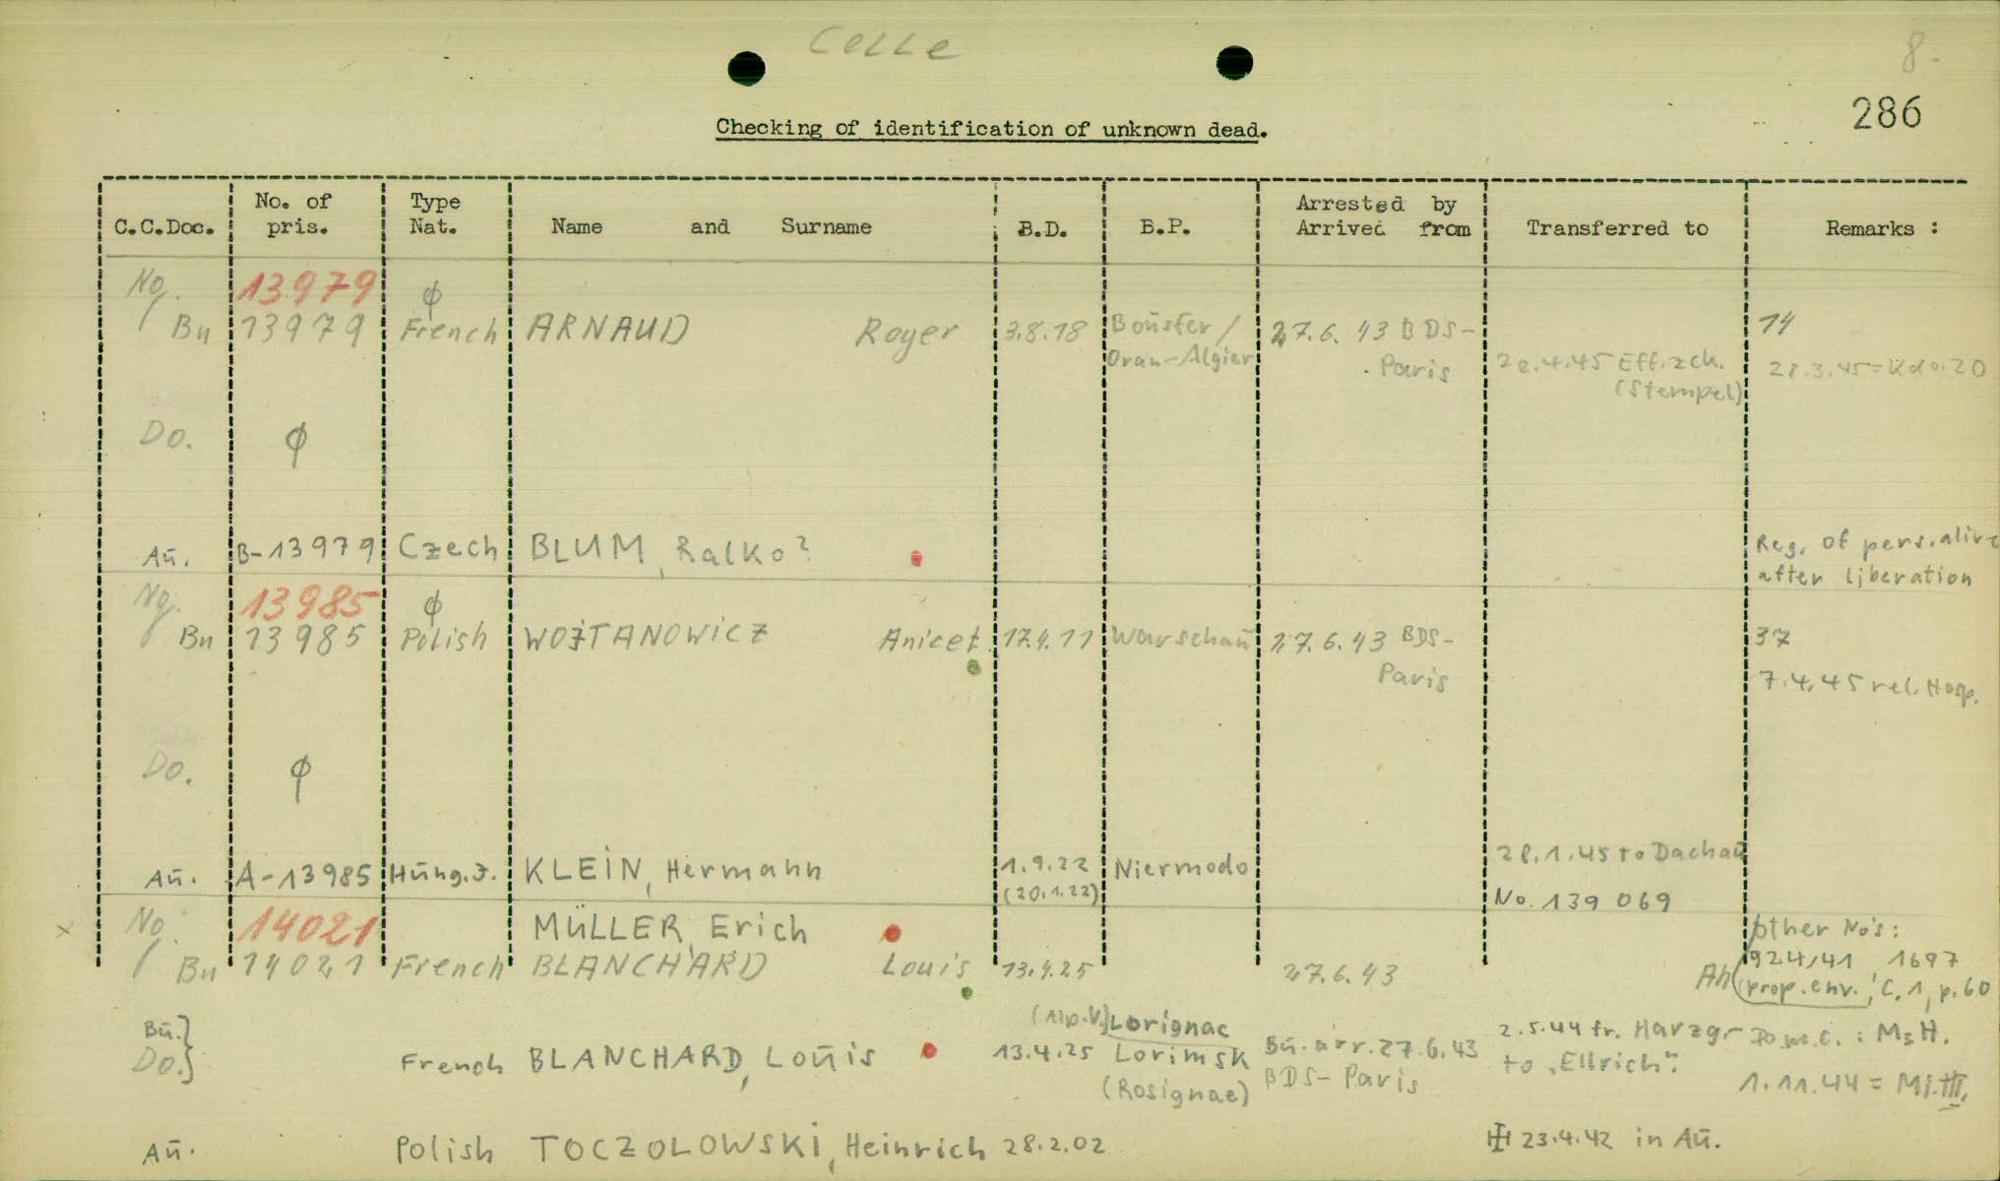 Celle
8.
286
Checking of identification of unknown dead.
C.C.Doc. No. of pris. Type Nat. Name and Surname B.D. B.P. Arrested by Arrived from Transferred to Remarks :
Ng. 13979 ϕ
Bu 13979 French ARNAUD Roger 3.8.18 Boūsfer / 27.6.43 BDS- 14
Oran-Algier Paris 28.4.45 Eff.zck. 28.3.45 = Kdo.20
(Stempel)
Do. ϕ
Aū. B-13979 Czech BLUM, Ralko? Reg. of pers. alive
after liberation
Ng. 13985 ϕ
Bu 13985 Polish WOJTANOWICZ Anicet 17.4.11 Warschaū 27.6.43 BDS- 37
Paris 7.4.45 rel. Hosp.
Do. ϕ
Aū. A-13985 Hūng.J. KLEIN, Hermann 1.9.22 Niermodo 28.1.45 to Dachaū
(20.1.22) No. 139 069
x Ng. 14021 MÜLLER, Erich other No's:
Bu 14021 French BLANCHARD Louis 13.4.25 27.6.43 924/41, 1697
(prop.env., C.1, p.60
Lorignac
Bū.} French BLANCHARD, Loūis 13.4.25 Lorimsk Bū. arr. 27.6.43 2.5.44 fr. Harzgr
Do.} (Rosignae) BDS- Paris to "Ellrich" : M5H.
1.11.44 = Mi.III.
Aū. Polish TOCZOLOWSKI, Heinrich 28.2.02 23.4.42 in Aū.